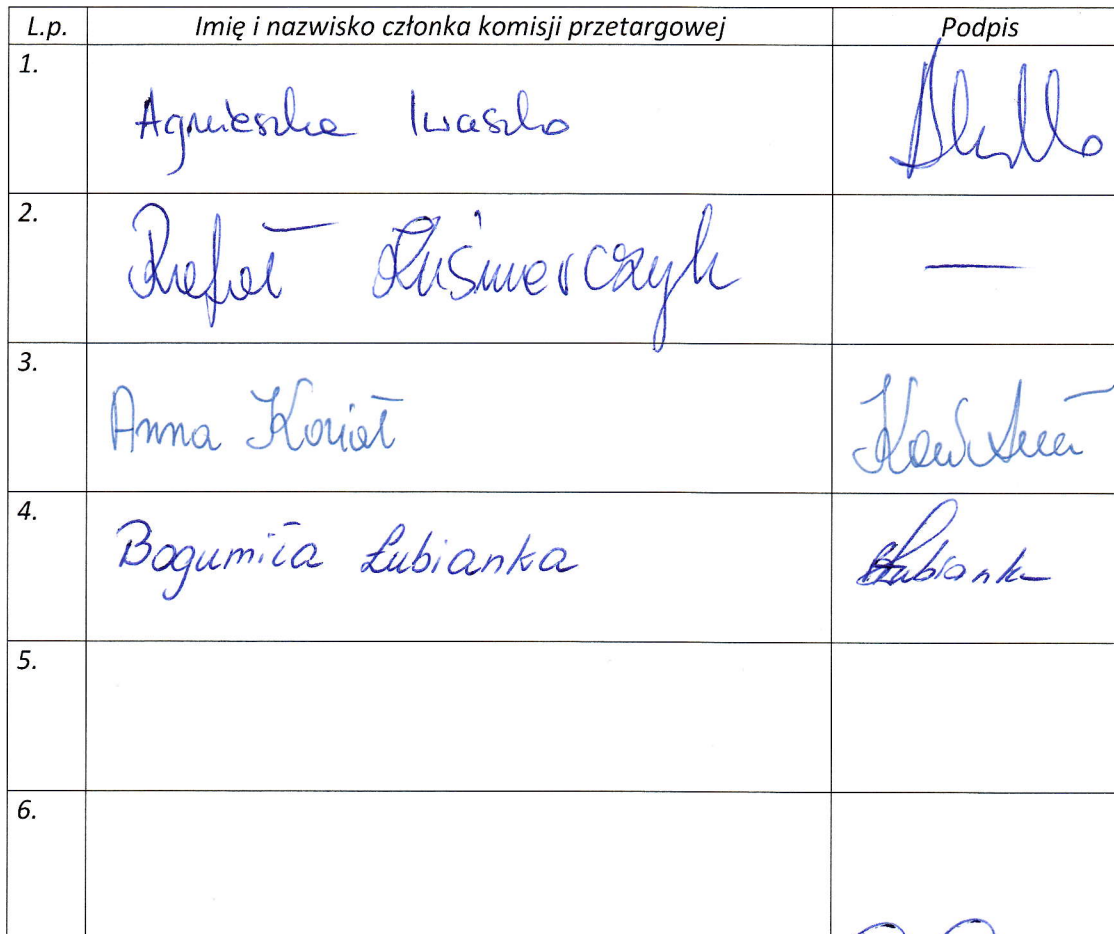 L.p. Imię i nazwisko członka komisji przetargowej Podpis
1. Agnieszka Iwaszko
2. Rafał Kuśmierczyk —
3. Anna Kozioł
4. Bogumiła Łubianka Łubianka
5.
6.